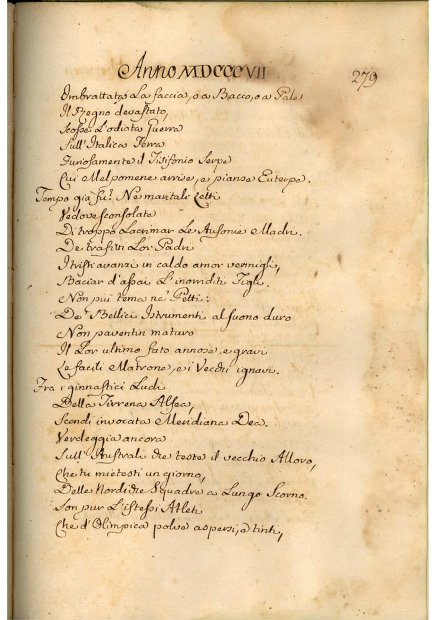 Anno MDCCCVII
279
Imbrattata La faccia, o a Bacco, o a Pale
Il Regno devastato,
Scosse L'odiata Guerra
Sull'Italica Terra
Furiosamente il Tisifonio Serpe
Cui Melpomene arrise, e pianse Euterpe.
Tempo già fu? Ne maritali Letti
Vedove sconsolate
Di troppo Lacrimar Le Ausonie Madri.
De trafitti Lor Padri
I tristi avanzi in caldo amor vermigli,
Baciar d'assai L'inorriditi Figli.
Non più tema ne' Petti:
De' Bellici Istrumenti al suono duro
Non paventin maturo
Il Lor ultimo fato annose, e gravi
Le facili Matrone, e i Vecchi ignavi.
Fra i ginnastici Ludi
Della Tirrena Alfea,
Scendi invocata Meridiana Dea.
Verdeggia ancora
Sull'Australi due teste il vecchio Alloro,
Che tu mietesti un giorno,
Delle Nordiche Squadre a Lungo Scorno.
Son pur L'istessi Atleti
Che d'Olimpica polve aspersi, e tinti,